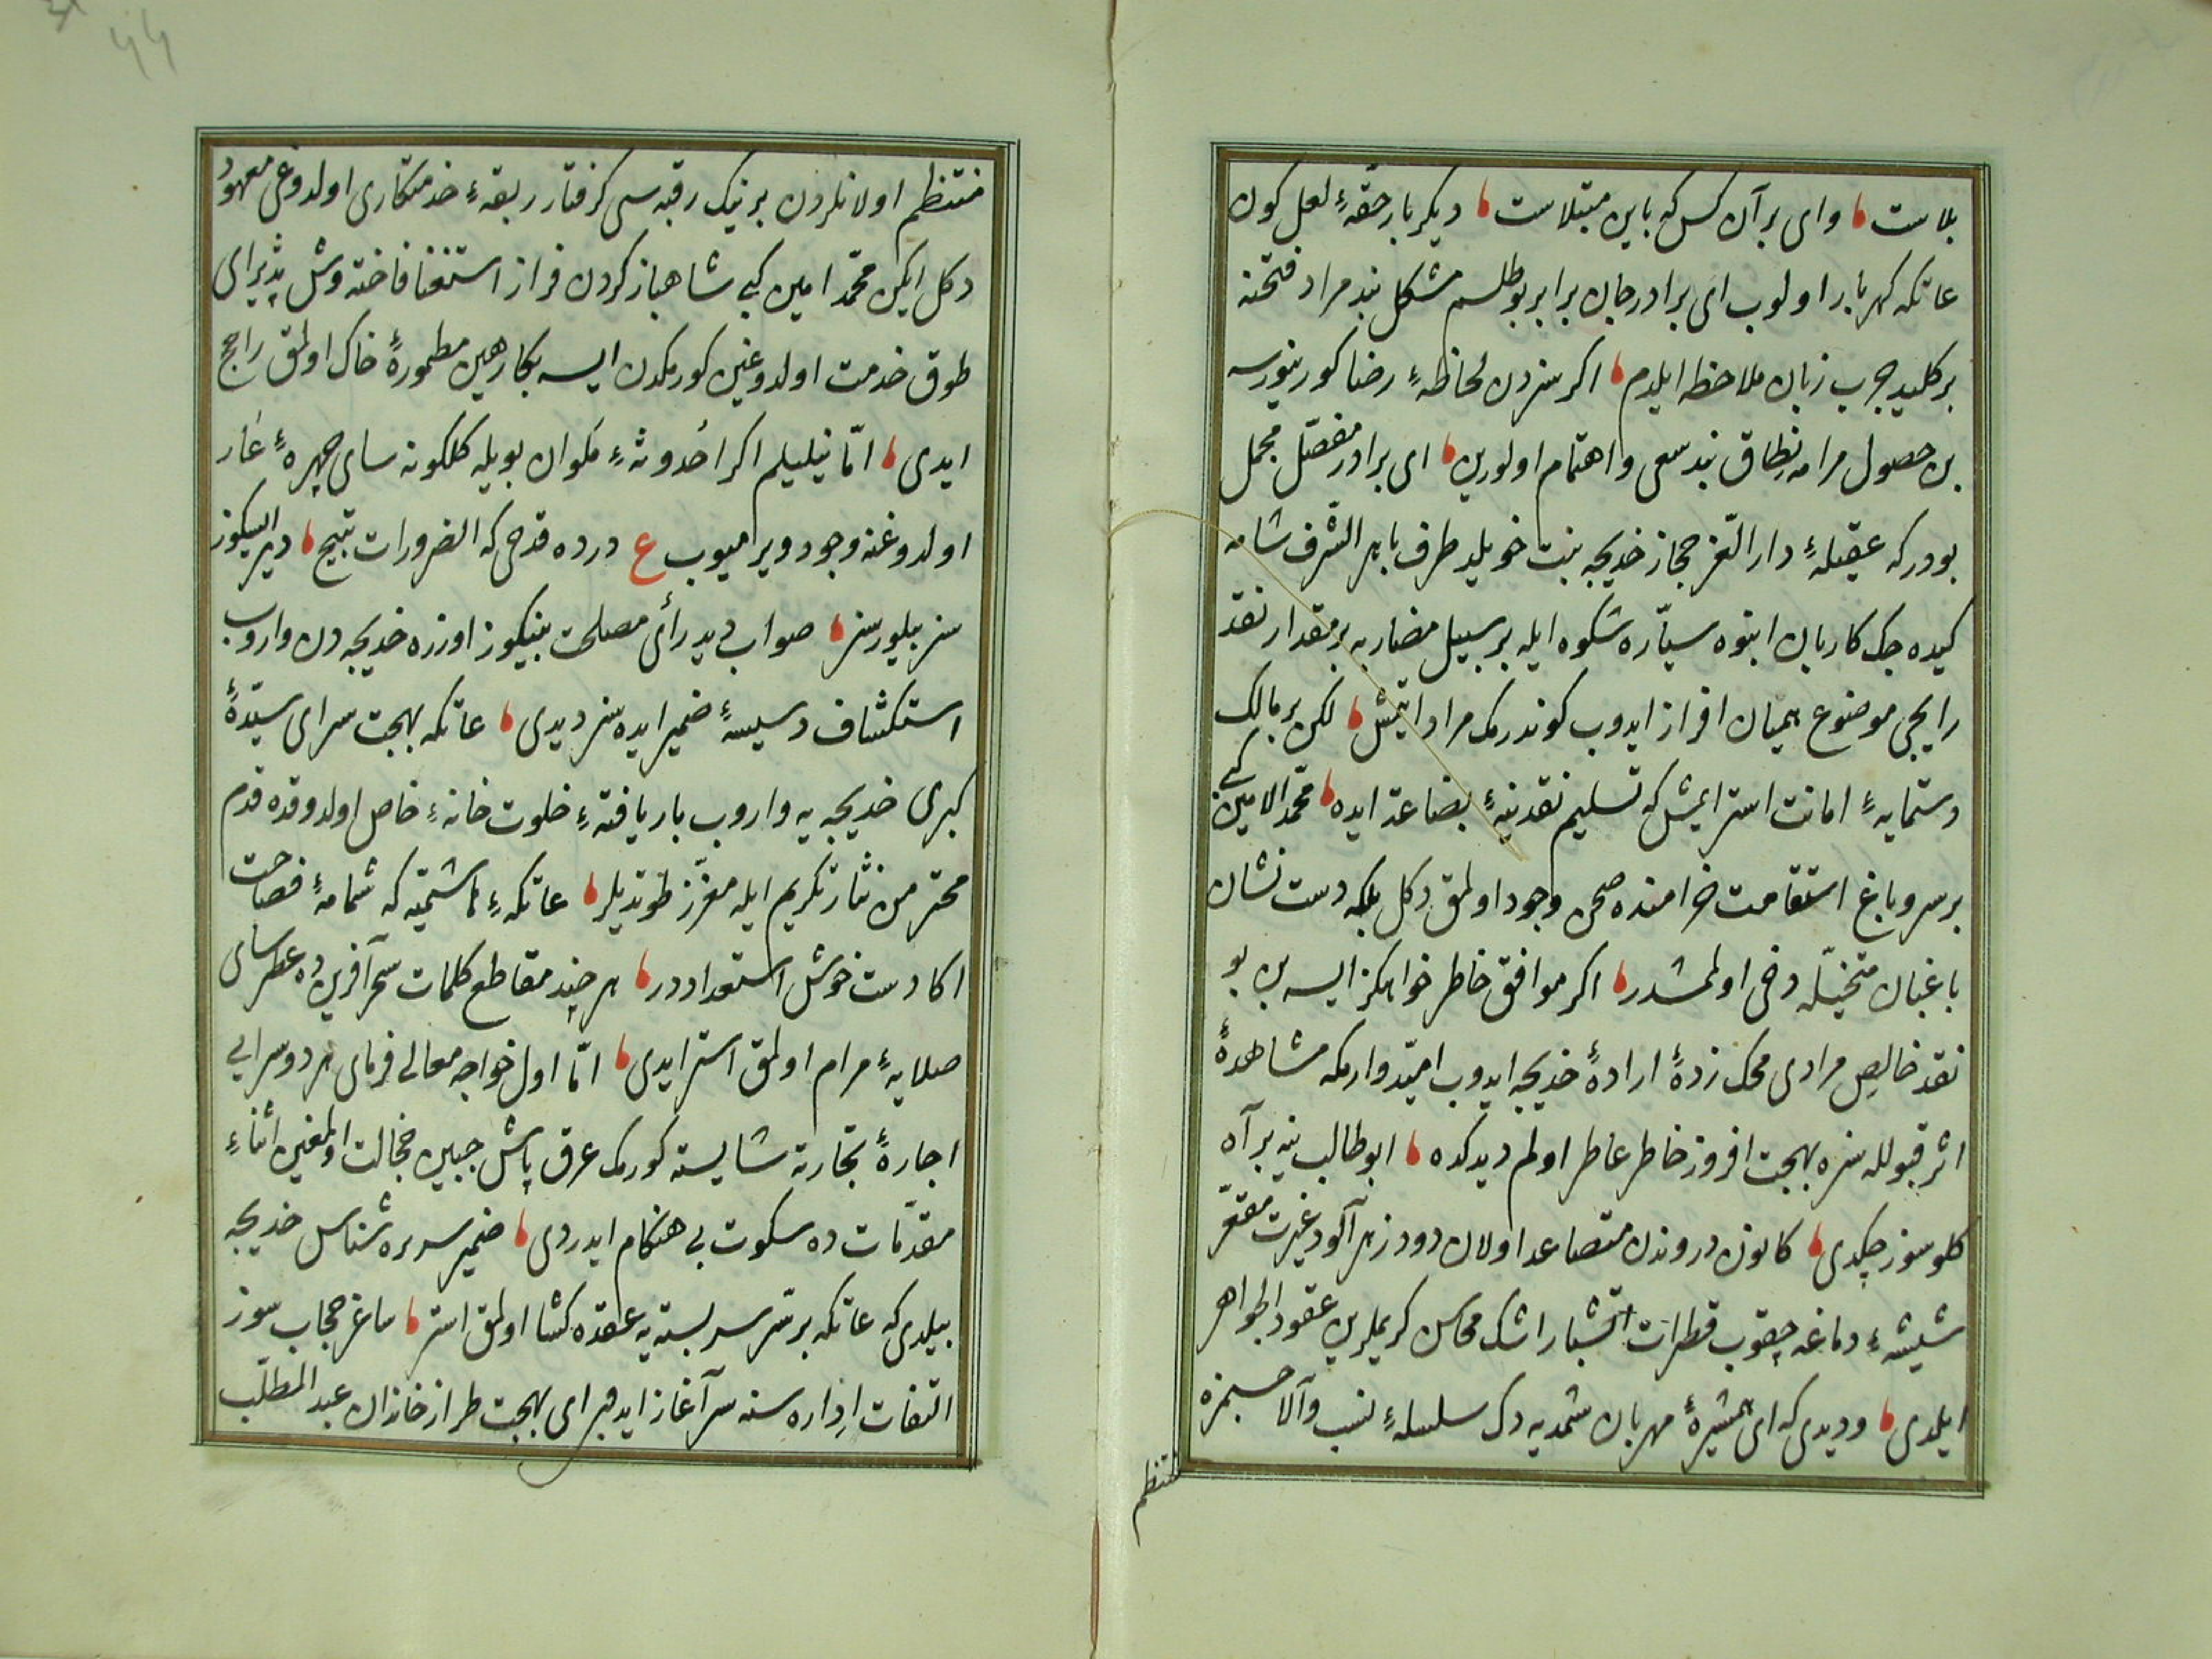 بلاست ، وای بر آن کس که باین مبتلاست ، دیکر بار حقّهٔ لعل کون
عاتکه کهربار اولوب ای برادر جان برابر بو طلسم مشکل بند مراد فتحنه
بر کلید چرب زبان ملاحظه ایلدم ، اکر سزدن لحاظهٔ رضا کورینورسه
بن حصول مرامه نطاق بند سعی و اهتمام اولورین ، ای برادر مفصّل مجمل
بودر که عقیلهٔ دار العزّ حجاز خدیجه بنت خویلد طرف باهر الشّرف شامه
کیده جک کاربان انبوه سیّاره شکوه ایله بر سبیل مضاربه بر مقدار نقد
رایجی موضوع همیان افراز ایدوب کوندرمک مراد ایتمش ، لکن بر مالک
دستمایهٔ امانت استر ایمش که تسلیم نقدینهٔ بضاعه ایده ، محمّد الامین کبی
بر سرو باغ استقامت خرامنده صحن وجود اولمق دکل بلکه دست نشان
باغبان متخیّله دخی اولمشدر ، اکر موافق خاطر خواهکز ایسه بن بو
نقد خالص مرادی محک زدهٔ ارادهٔ خدیجه ایدوب امیّدوارمکه مشاهدهٔ
اثر قبولله سزه بهجت افروز خاطر عاطر اولم دیدکده ، ابو طالب ینه بر آه
کلوسوز چکدی ، کانون دروندن متصاعد اولان دود زهر آلود غیرت مقعّر
شیشهٔ دماغه چقوب قطرات آتشبار اشک محاسن کریملرین عقود الجواهر
ایلدی ، و دیدی که ای همشیرهٔ مهربان شمدیه دک سلسلهٔ نسب والا حسبمزه
منتظم
منتظم اولانلردن برینک رقبه سی کرفتار ربقهٔ خدمتکاری اولدوغی معهود
دکل ایکن محمّد امین کبی شاهباز کردن فراز استغنا فاخته وش پذیرای
طوق خدمت اولدوغین کورمکدن ایسه بکا رهین مطمورهٔ خاک اولمق راجح
ایدی ، امّا نیلیلم اکر احدوثهٔ مکوان بویله کلکونه سای چهرهٔ عار
اولدوغنه وجود ویرامیوب ع درده قدحی که الضرورات تبیح ، دیر ایسکوز
سز بیلورسز ، صواب دید رأی مصلحت بینیکوز اوزره خدیجه دن واروب
استکشاف دسیسهٔ ضمیر ایده سز دیدی ، عاتکه بهجت سرای سیّدهٔ
کبری خدیجه یه واروب بار یافتهٔ خلوت خانهٔ خاص اولدوقده قدم
محترمن نثار تکریم ایله معزّز طوتدیلر ، عاتکهٔ هاشمیّه که شمامهٔ فصاحت
اکا دست خوش استعداددر ، هر چند مقاطع کلمات سحر آفرین ده عطرسای
صلایهٔ مرام اولمق استر ایدی ، امّا اول خواجه معالی فرمای هر دو سرایی
اجارهٔ تجارته شایسته کورمک عرق پاش جبین خجالت اولمغین اثناء
مقدّمات ده سکوت بی هنکام ایدردی ، ضمیر سریره شناس خدیجه
بیلدی که عاتکه بر سّر سر بسته یه عقده کشا اولمق استر ، ساغر حجاب سوز
التفات اداره سنه سرآغاز ایدر ای بهجت طراز خاندان عبد المطلّب